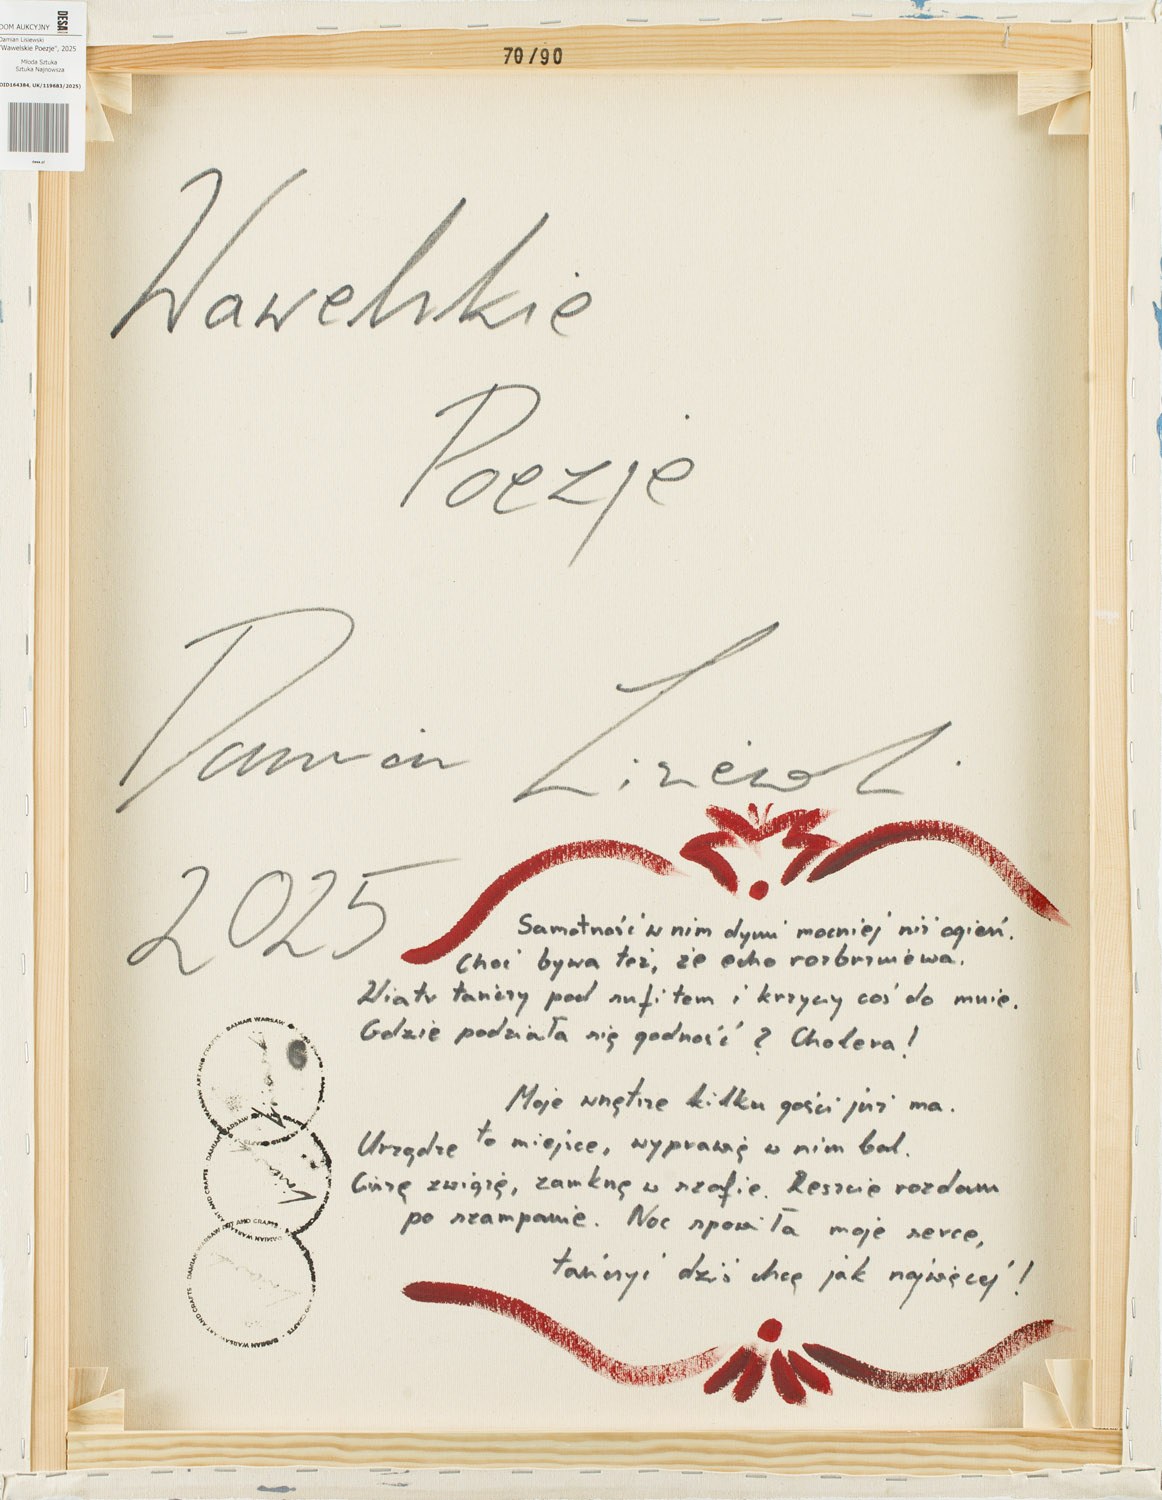 DESA
DOM AUKCYJNY
Damian Lisiewski
"Wawelskie Poezje", 2025
Młoda Sztuka
Sztuka Najnowsza
OID164384, UK/119683/2025)
desa.pl
70/90
Wawelskie
Poezje
Damian
2025
Samotność w nim dymi mocniej niż ogień.
Choć bywa też, że echo rozbrzmiewa.
Wiatr tańczy pod sufitem i krzyczy coś do mnie.
Gdzie podziała się godność? Cholera!
Moje wnętrze kilku gości już ma.
Urządzę to miejsce, wyprawię w nim bal.
Ciszę zwiążę, zamknę w szafie. Reszcie rozdam
po szampanie. Noc spowiła moje serce,
tańczyć dziś chcę jak najwięcej!
DAMIAN WARSAW
ART AND CRAFTS
ART AND CRAFTS
ART AND CRAFTS